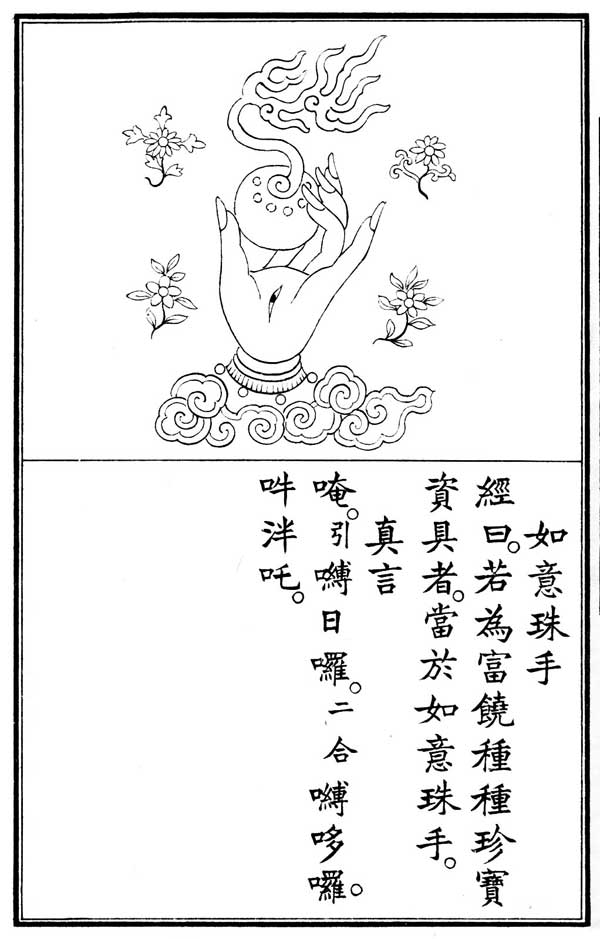 如意珠手
經曰。若為富饒種種珍寶
資具者。當於如意珠手。
真言
唵。引嚩日囉。二合嚩哆囉。
吽泮吒。